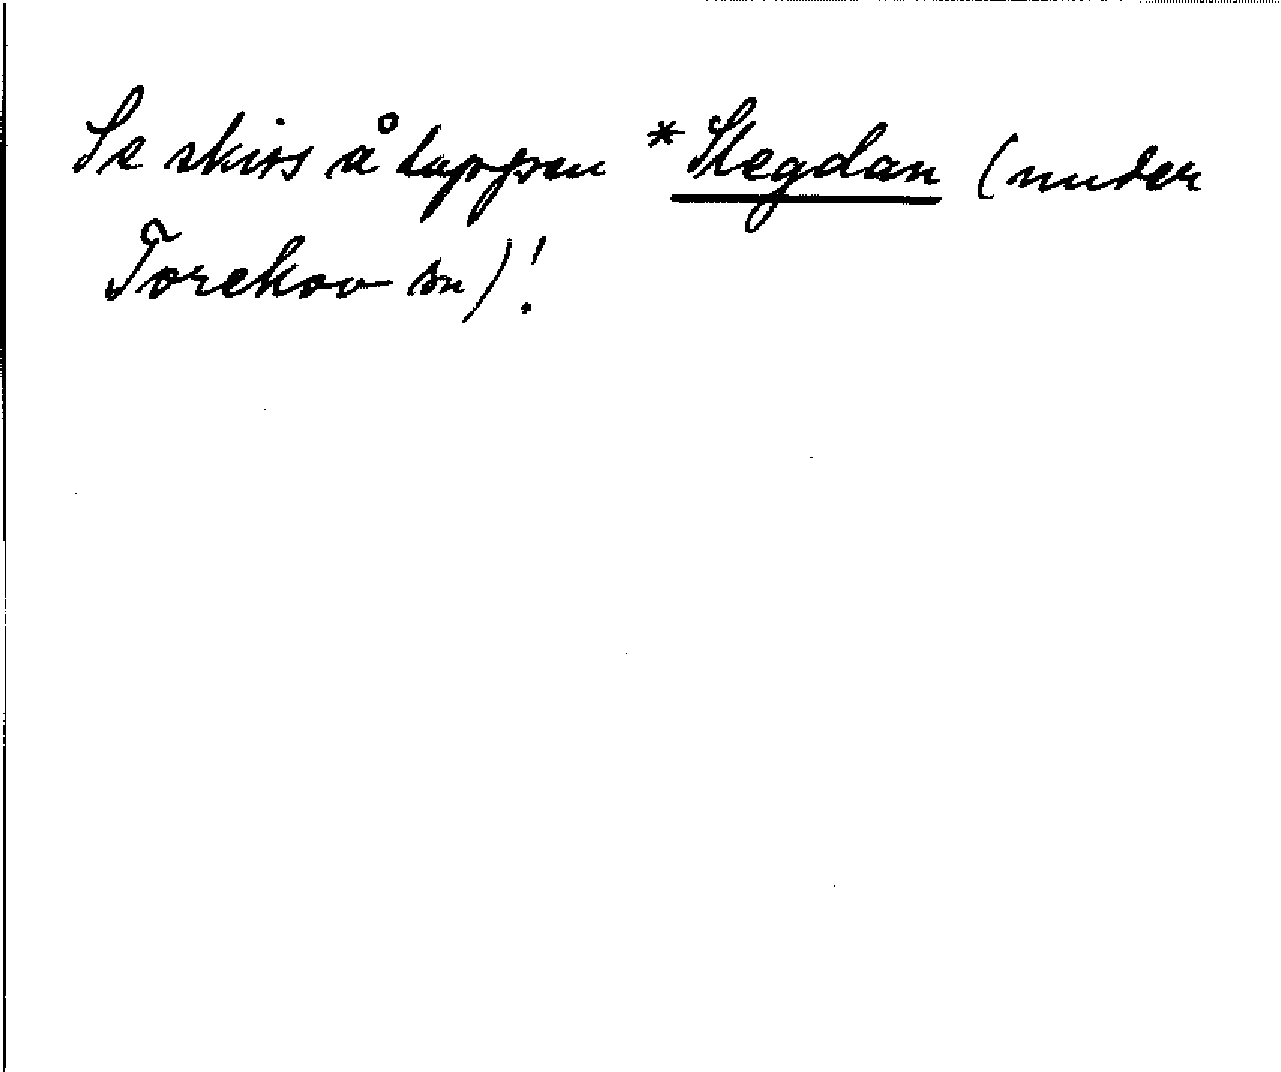 Se skiss å lappen *Stegdan (under
Torekov sn)!